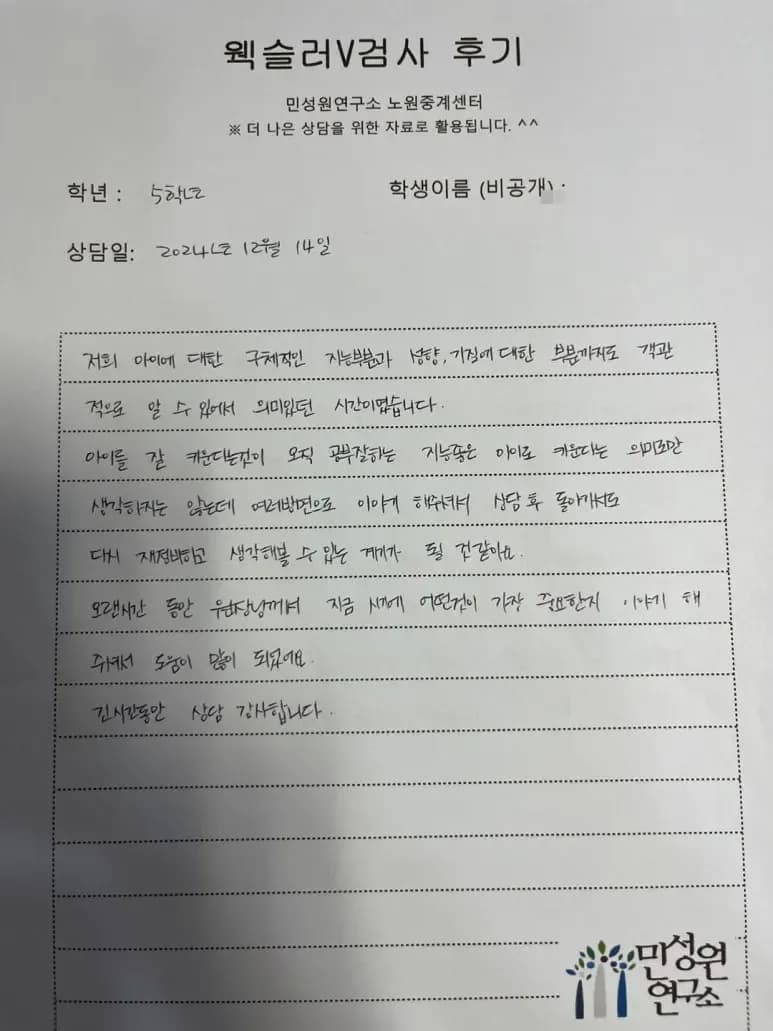 웩슬러V검사 후기
민성원연구소 노원중계센터
※ 더 나은 상담을 위한 자료로 활용됩니다. ^^
학년 : 5학년
학생이름 (비공개) :
상담일: 2024년 12월 14일
저희 아이에 대한 구체적인 지능부분과 성향, 기질에 대한 부분까지도 객관
적으로 알 수 있어서 의미있던 시간이였습니다.
아이를 잘 키운다는것이 오직 공부잘하는 지능좋은 아이로 키운다는 의미로만
생각하지는 않는데 여러방면으로 이야기 해주셔서 상담 후 돌아가서도
다시 재정비하고 생각해볼 수 있는 계기가 될 것 같아요.
오랜시간 동안 부원장님께서 지금 시기에 어떤것이 가장 중요한지 이야기 해
주셔서 도움이 많이 되었어요.
긴시간동안 상담 감사합니다.
민성원
연구소